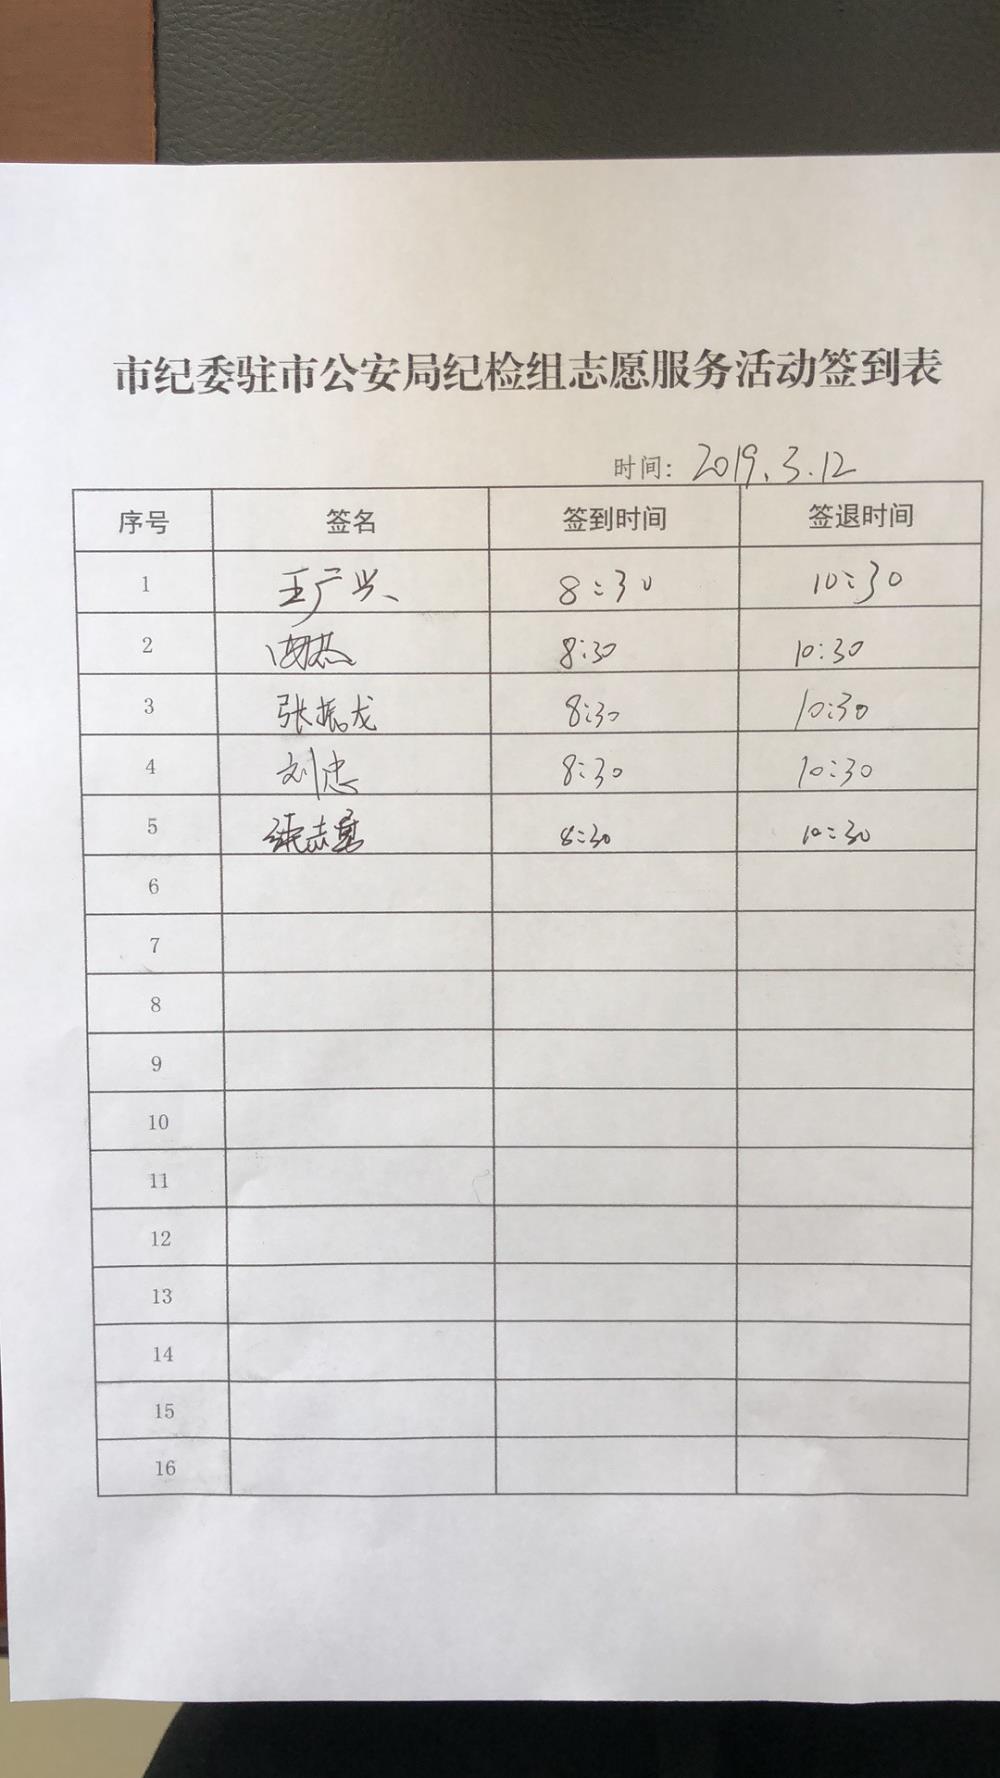 市纪委驻市公安局纪检组志愿服务活动签到表
时间: 2019.3.12
序号 签名 签到时间 签退时间
1 王广兴 8:30 10:30
2 8:30 10:30
3 张振龙 8:30 10:30
4 刘忠 8:30 10:30
5 张志勇 8:30 10:30
6
7
8
9
10
11
12
13
14
15
16